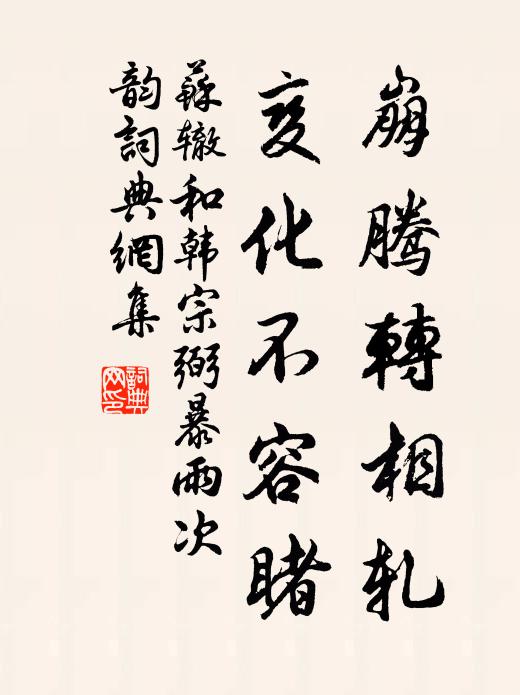 崩騰轉相軋
变化不容睹
蘇辙和韩宗弼暴雨次
韵詞典網集
詞典
网印